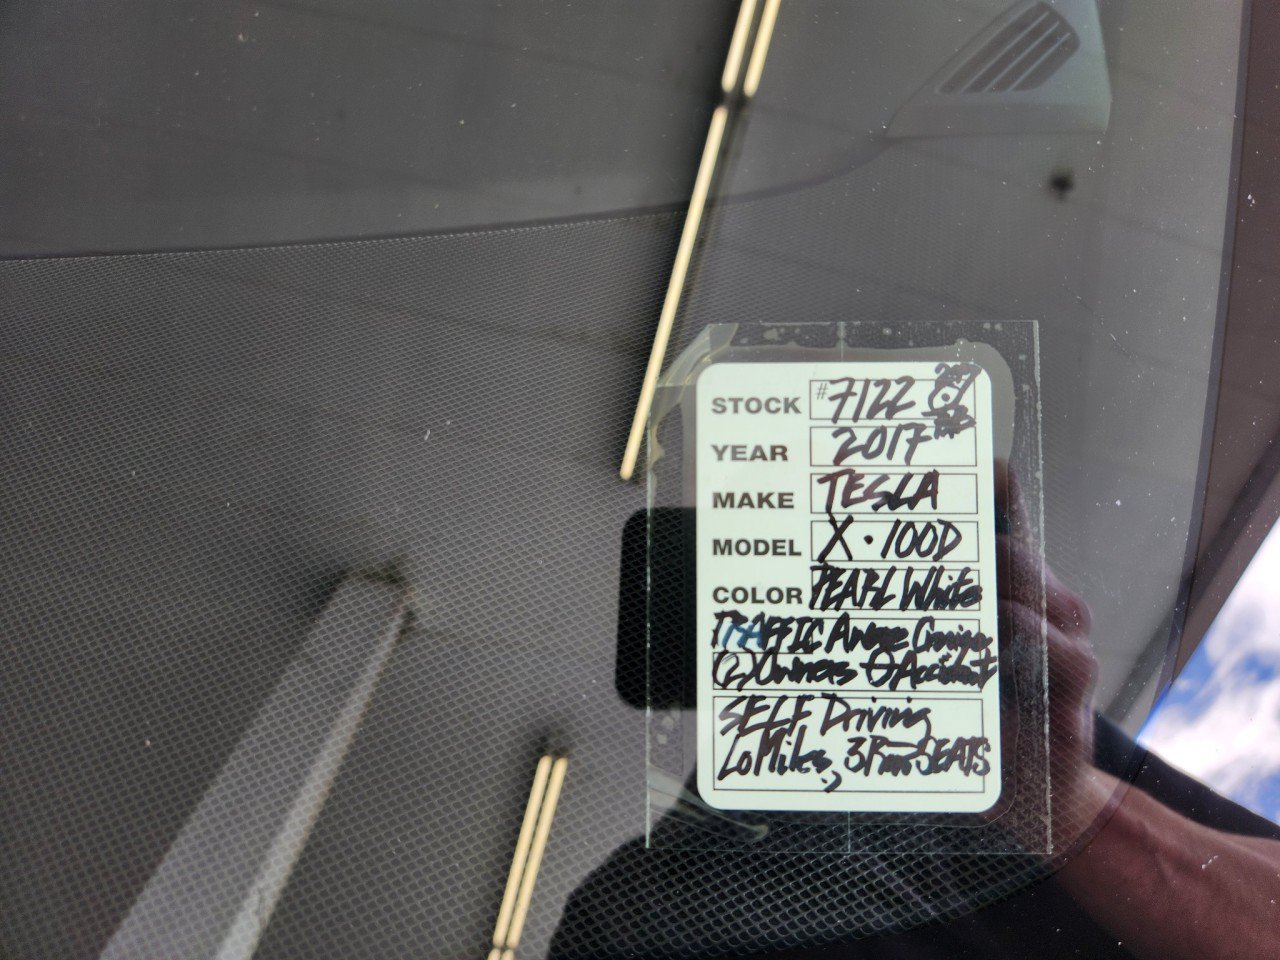 STOCK #7122
YEAR 2017
MAKE TESLA
MODEL X·100D
COLOR PEARL White
TRAFFIC Aware Cruise
(2) Owners 0 Accident
SELF Driving
Lo Miles, 3 Row SEATS